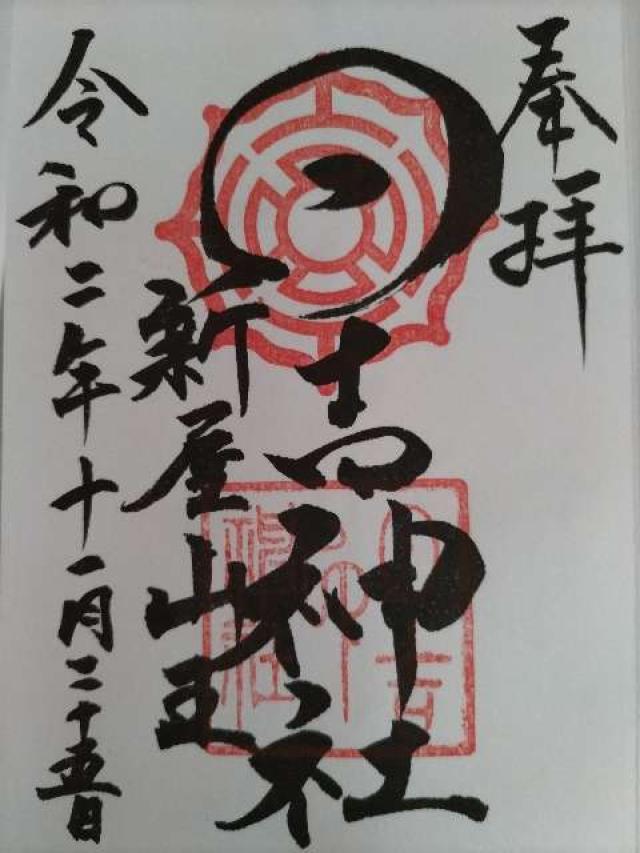 奉拝
日吉神社
新屋山王
令和二年十一月二十五日
日吉神社